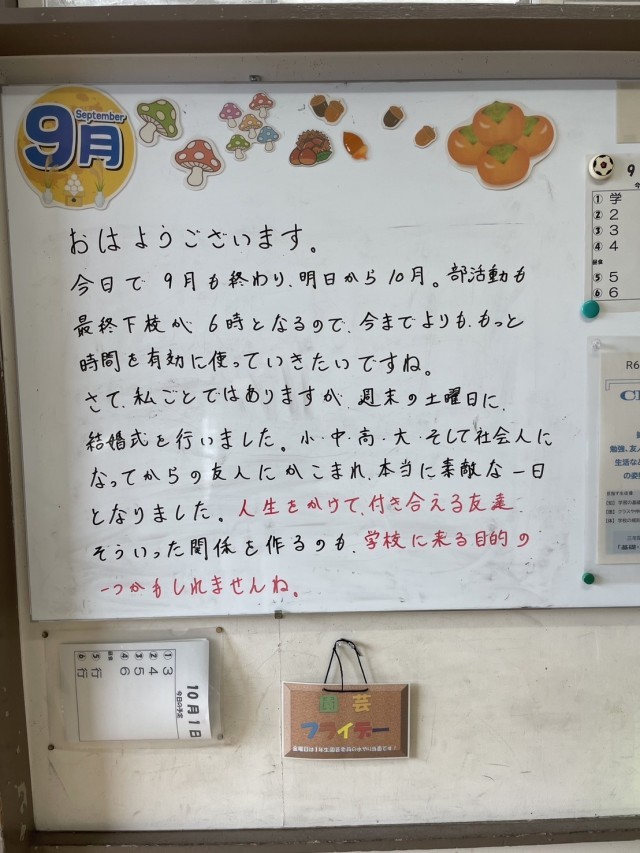 9月
September
おはようございます。
今日で9月も終わり、明日から10月。部活動も
最終下校が6時となるので、今までよりも、もっと
時間を有効に使っていきたいですね。
さて、私ごとではありますが、週末の土曜日に、
結婚式を行いました。小・中・高・大・そして社会人に
なってからの友人にかこまれ、本当に素敵な一日
となりました。人生をかけて、付き合える友達、
そういった関係を作るのも、学校に来る目的の
一つかもしれませんね。
9
① 学
② 2
③ 3
④ 4
⑤ 5
⑥ 6
R6
勉強、友
生活な
の姿
10月1日
今日の予定
① 3
② 4
③ 5
④ 6
⑤ 行
⑥ 行
園芸
フライデー